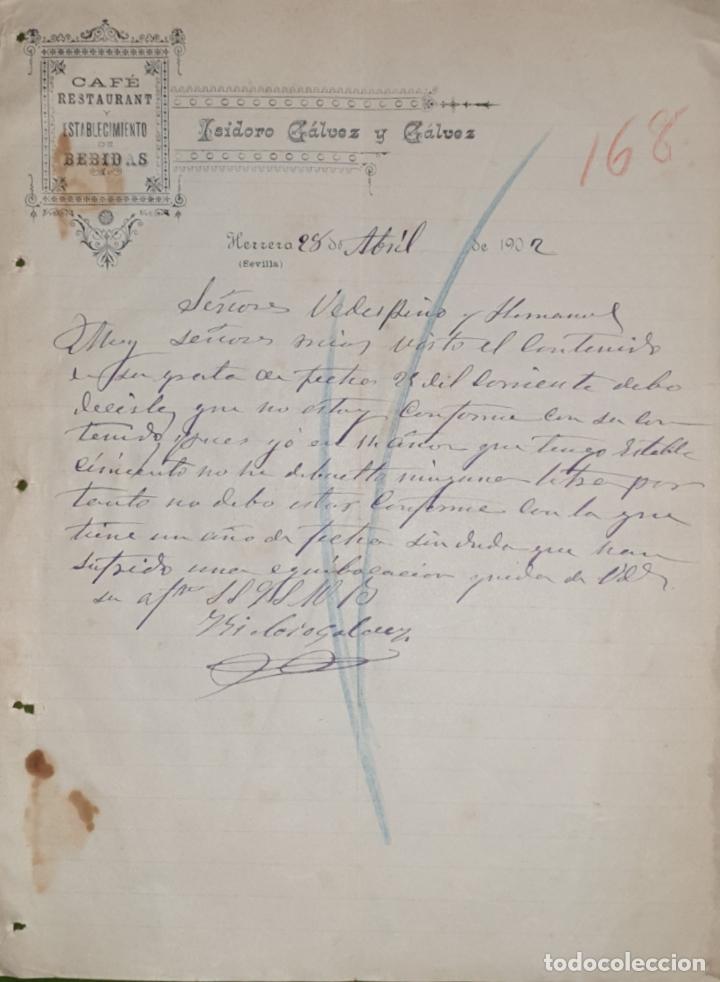 CAFÉ
RESTAURANT
Y
ESTABLECIMIENTO
DE
BEBIDAS
Isidoro Gálvez y Gálvez
168
Herrera 28 de Abril de 1902
(Sevilla)
Señores Valdespino y Hermano
Muy señores mios visto el Contenido
en su grata de fecha 25 del Corriente debo
decirles que no estoy Conforme con su con
tenido, pues yó en 11 años que tengo Estable
cimiento no he debuelto ninguna letra por
tanto no debo estar Conforme con la que
tiene un año de fecha sin duda que han
sufrido una equibocacion queda de Vdes
su afmo S S Q S M B
Ysidoro Galvez
todocoleccion.net